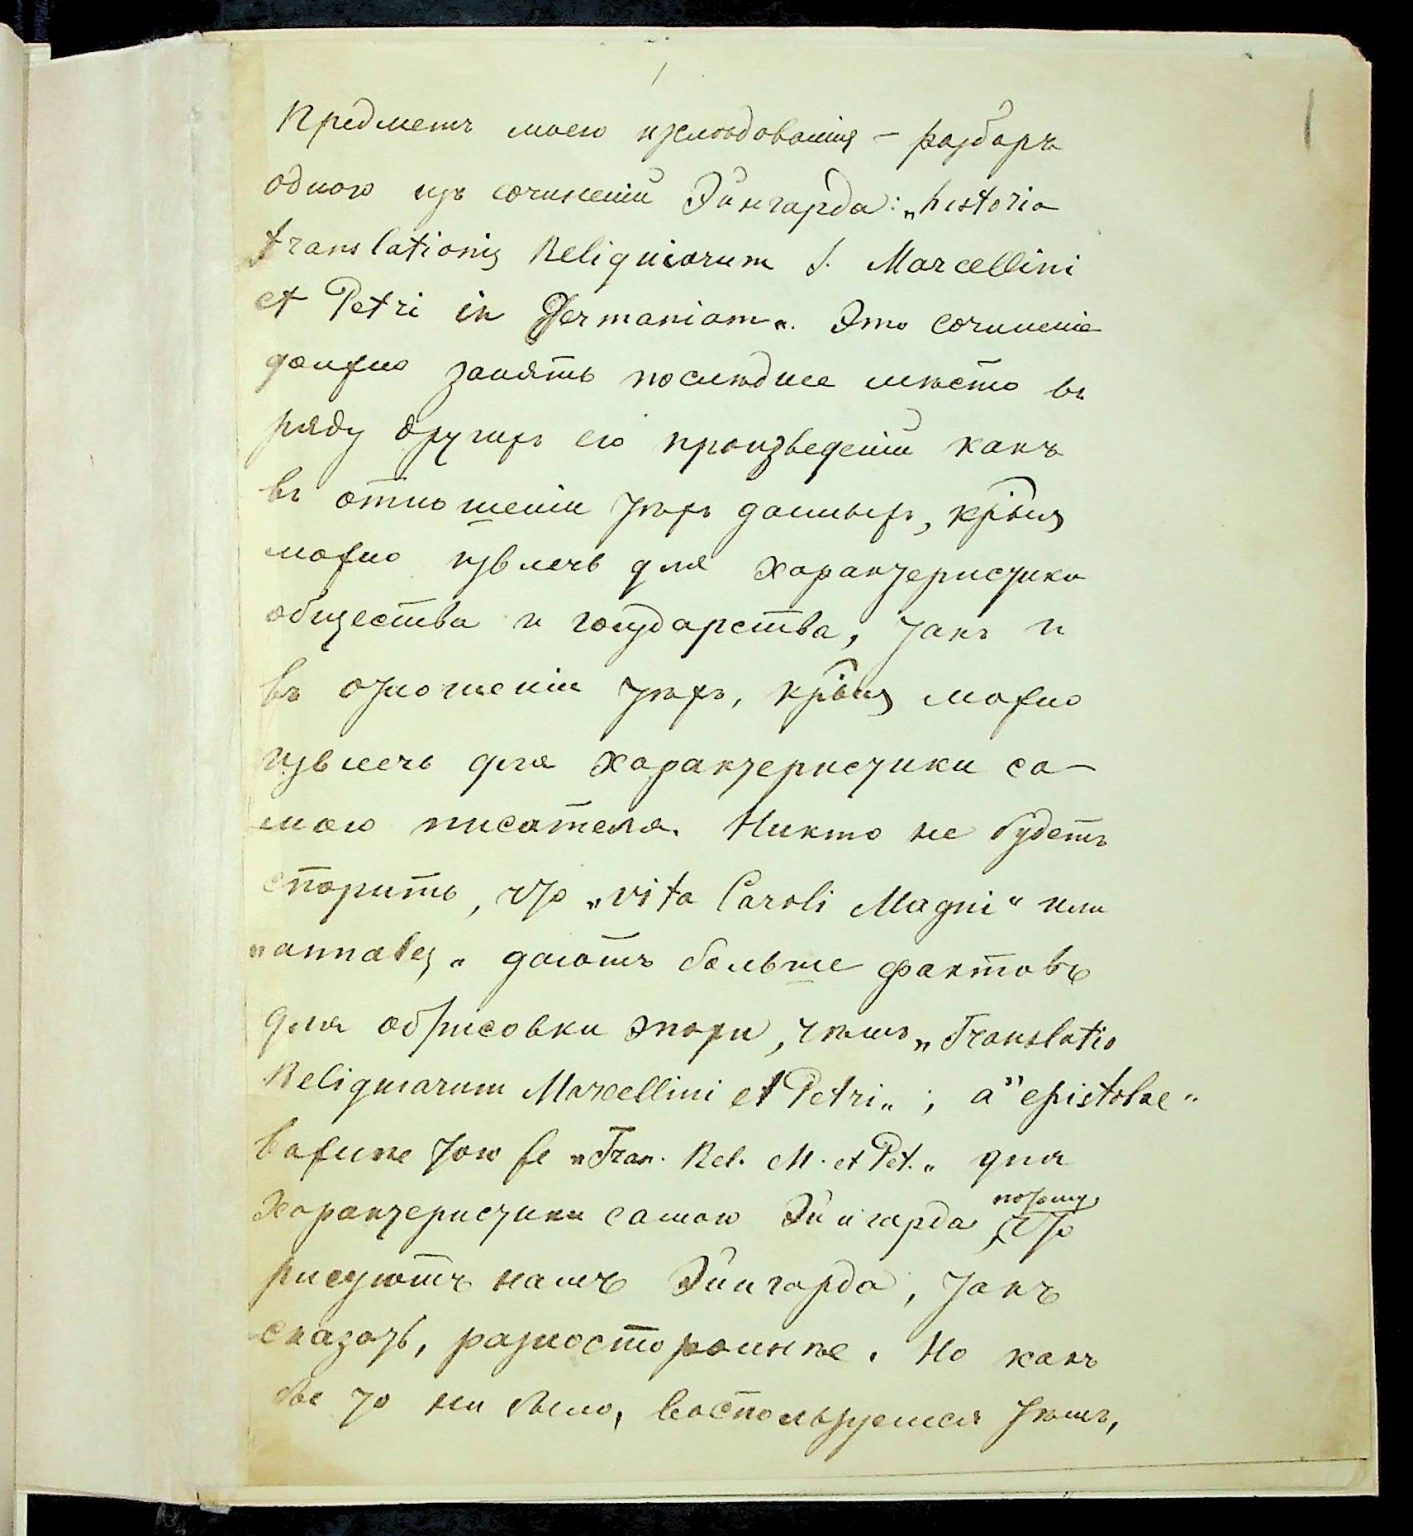 1
Предметъ моего изслѣдованія – разборъ
одного изъ сочиненій Эйнгарда: „historia
translationis Reliquiarum S. Marcellini
et Petri in Germaniam“. Это сочиненіе
должно занять послѣднее мѣсто въ
ряду другихъ его произведеній какъ
въ отношеніи тѣхъ данныхъ, крыя
можно извлечь для характеристики
общества и государства, такъ и
въ отношеніи тѣхъ, крыя можно
извлечь для характеристики са-
мого писателя. Никто не будетъ
спорить, что „vita Caroli Magni“ или
„annales“ даютъ больше фактовъ
для обрисовки эпохи, чѣмъ „Translatio
Reliquiarum Marcellini et Petri“; а „epistolae“
важнѣе того же „Tran. Rel. M. et Pet.“ для
характеристики самого Эйнгарда, потому, что
рисуютъ намъ Эйнгарда, такъ
сказать, разностороннѣе. Но какъ
бы то ни было, воспользуемся тѣмъ,